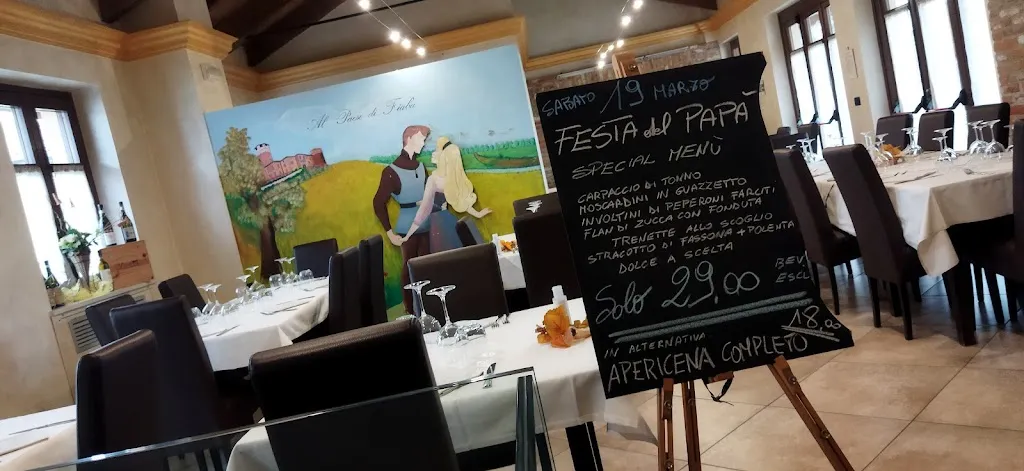 Al Paese di Fiaba
SABATO 19 MARZO
FESTA del PAPÀ
SPECIAL MENÙ
CARPACCIO DI TONNO
MOSCARDINI IN GUAZZETTO
INVOLTINI DI PEPERONI FARCITI
FLAN DI ZUCCA CON FONDUTA
TRENETTE ALLO SCOGLIO
STRACOTTO DI FASSONA + POLENTA
DOLCE A SCELTA
Solo 29,00 BEV ESCL
IN ALTERNATIVA
APERICENA COMPLETO 18.00